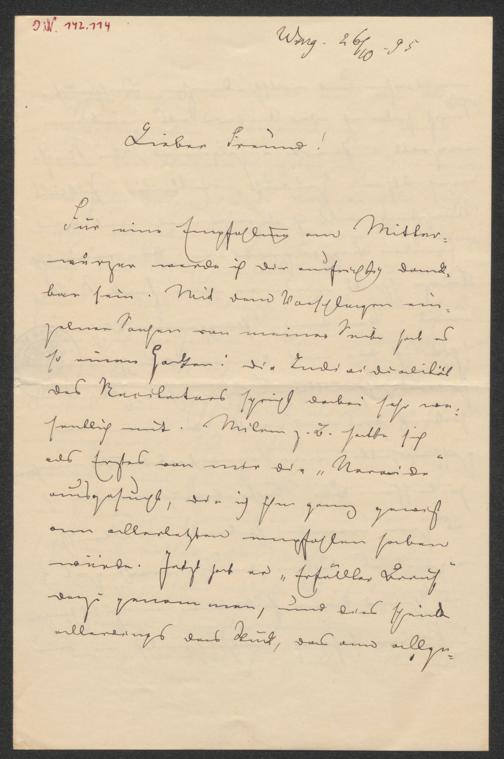 I.N. 142.114
26/10 - 95
Lieber Freund!
Für eine Empfehlung an Mitter-
wurzer werde ich dir aufrichtig dank-
bar sein. Mit dem Vorschlagen ein-
zelner Sachen von meiner Seite hat es
so einen Haken: die Individualität
des Recitators spricht dabei sehr we-
sentlich mit. Milan z. B. hatte sich
als Erstes von mir die „Nereide“
ausgesucht, die ich ihm ganz gewiß
am allerletzten empfohlen haben
würde. Jetzt hat er „Erfüllter Beruf“
dazu genommen, und dies scheint
allerdings das Stück, das am allge-